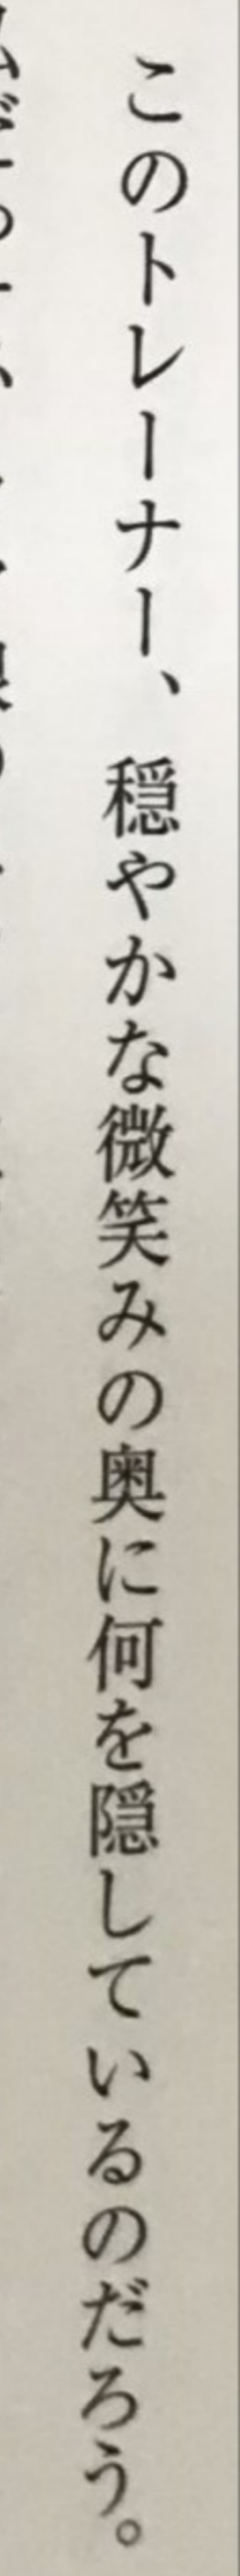 このトレーナー、穏やかな微笑みの奥に何を隠しているのだろう。